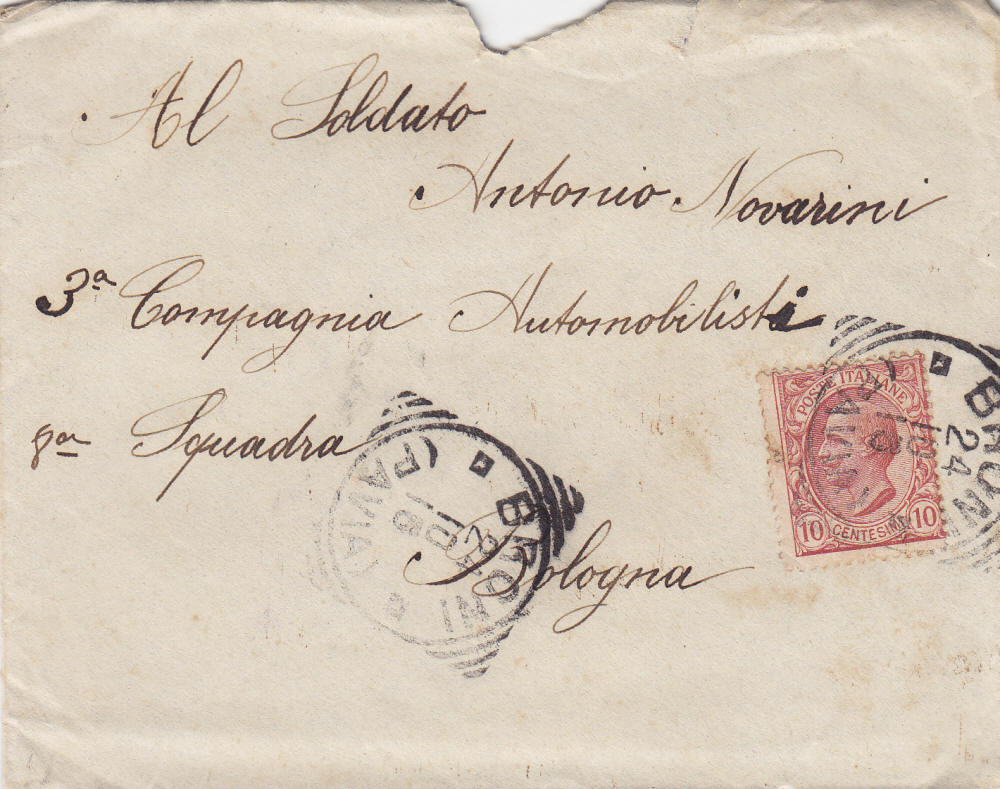 Al Soldato
Antonio Novarini
3ª Compagnia Automobilisti
8ª Squadra
Bologna
POSTE ITALIANE
10 CENTESIMI 10
BRONI
24
(PAVIA)
BRONI
24
(PAVIA)